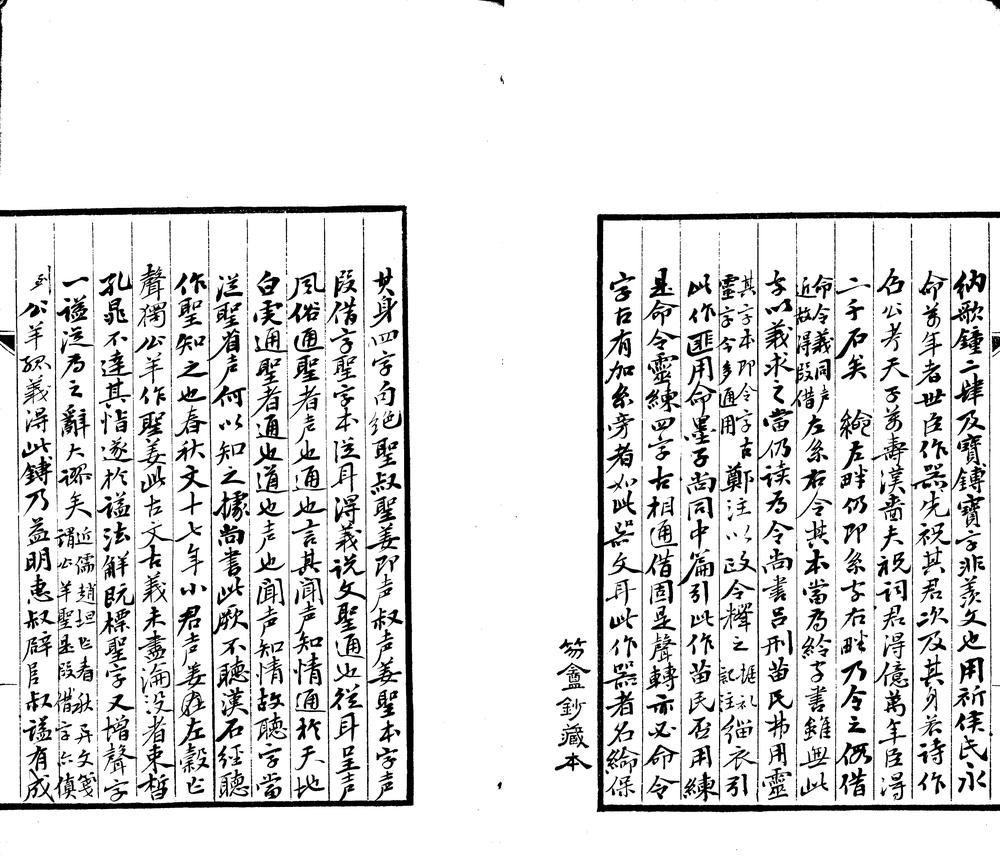 納歌鐘二肆及寶鎛寶字非羨文也用祈侯氏永
命萬年者世臣作器先祝其君次及其身若詩作
召公考天子萬壽漢嗇夫祝詞君得億萬年臣得
二千石矣 綸左畔仍即糸字右畔乃令之叚借
命令義同声
近故得叚借
左糸右令其本當為紷字書雖無此
字以義求之當仍读為令尚書吕刑苗民弗用靈
其字本即令字古
靈字令多通用
鄭注以政令釋之
緇衣引
此作匪用命墨子尚同中篇引此作苗民否用練
是命令靈練四字古相通借固是聲轉亦必命令
字古有加糸旁者如此器文耳此作器者名綸保
笏盦鈔藏本
其身四字句絕聖叔聖姜即声叔声姜聖本字声
叚借字聖字本从耳得義说文聖通也從耳呈声
風俗通聖者声也通也言其聞声知情通於天地
白虎通聖者通也道也声也聞声知情故聽字當
从聖省声何以知之據尚書此厥不聽漢石經聽
作聖知之也春秋文十七年小君声姜左穀作
聲獨公羊作聖姜此古文古義未盡淪没者束晳
孔晁不達其恉遂於謚法解既標聖字又增聲字
一謚从為之辭大謬矣
近儒趙坦作春秋异文箋
謂公羊聖是叚借字亦傎
公羊孤義得此鎛乃益明惠叔辟
叔謚有成